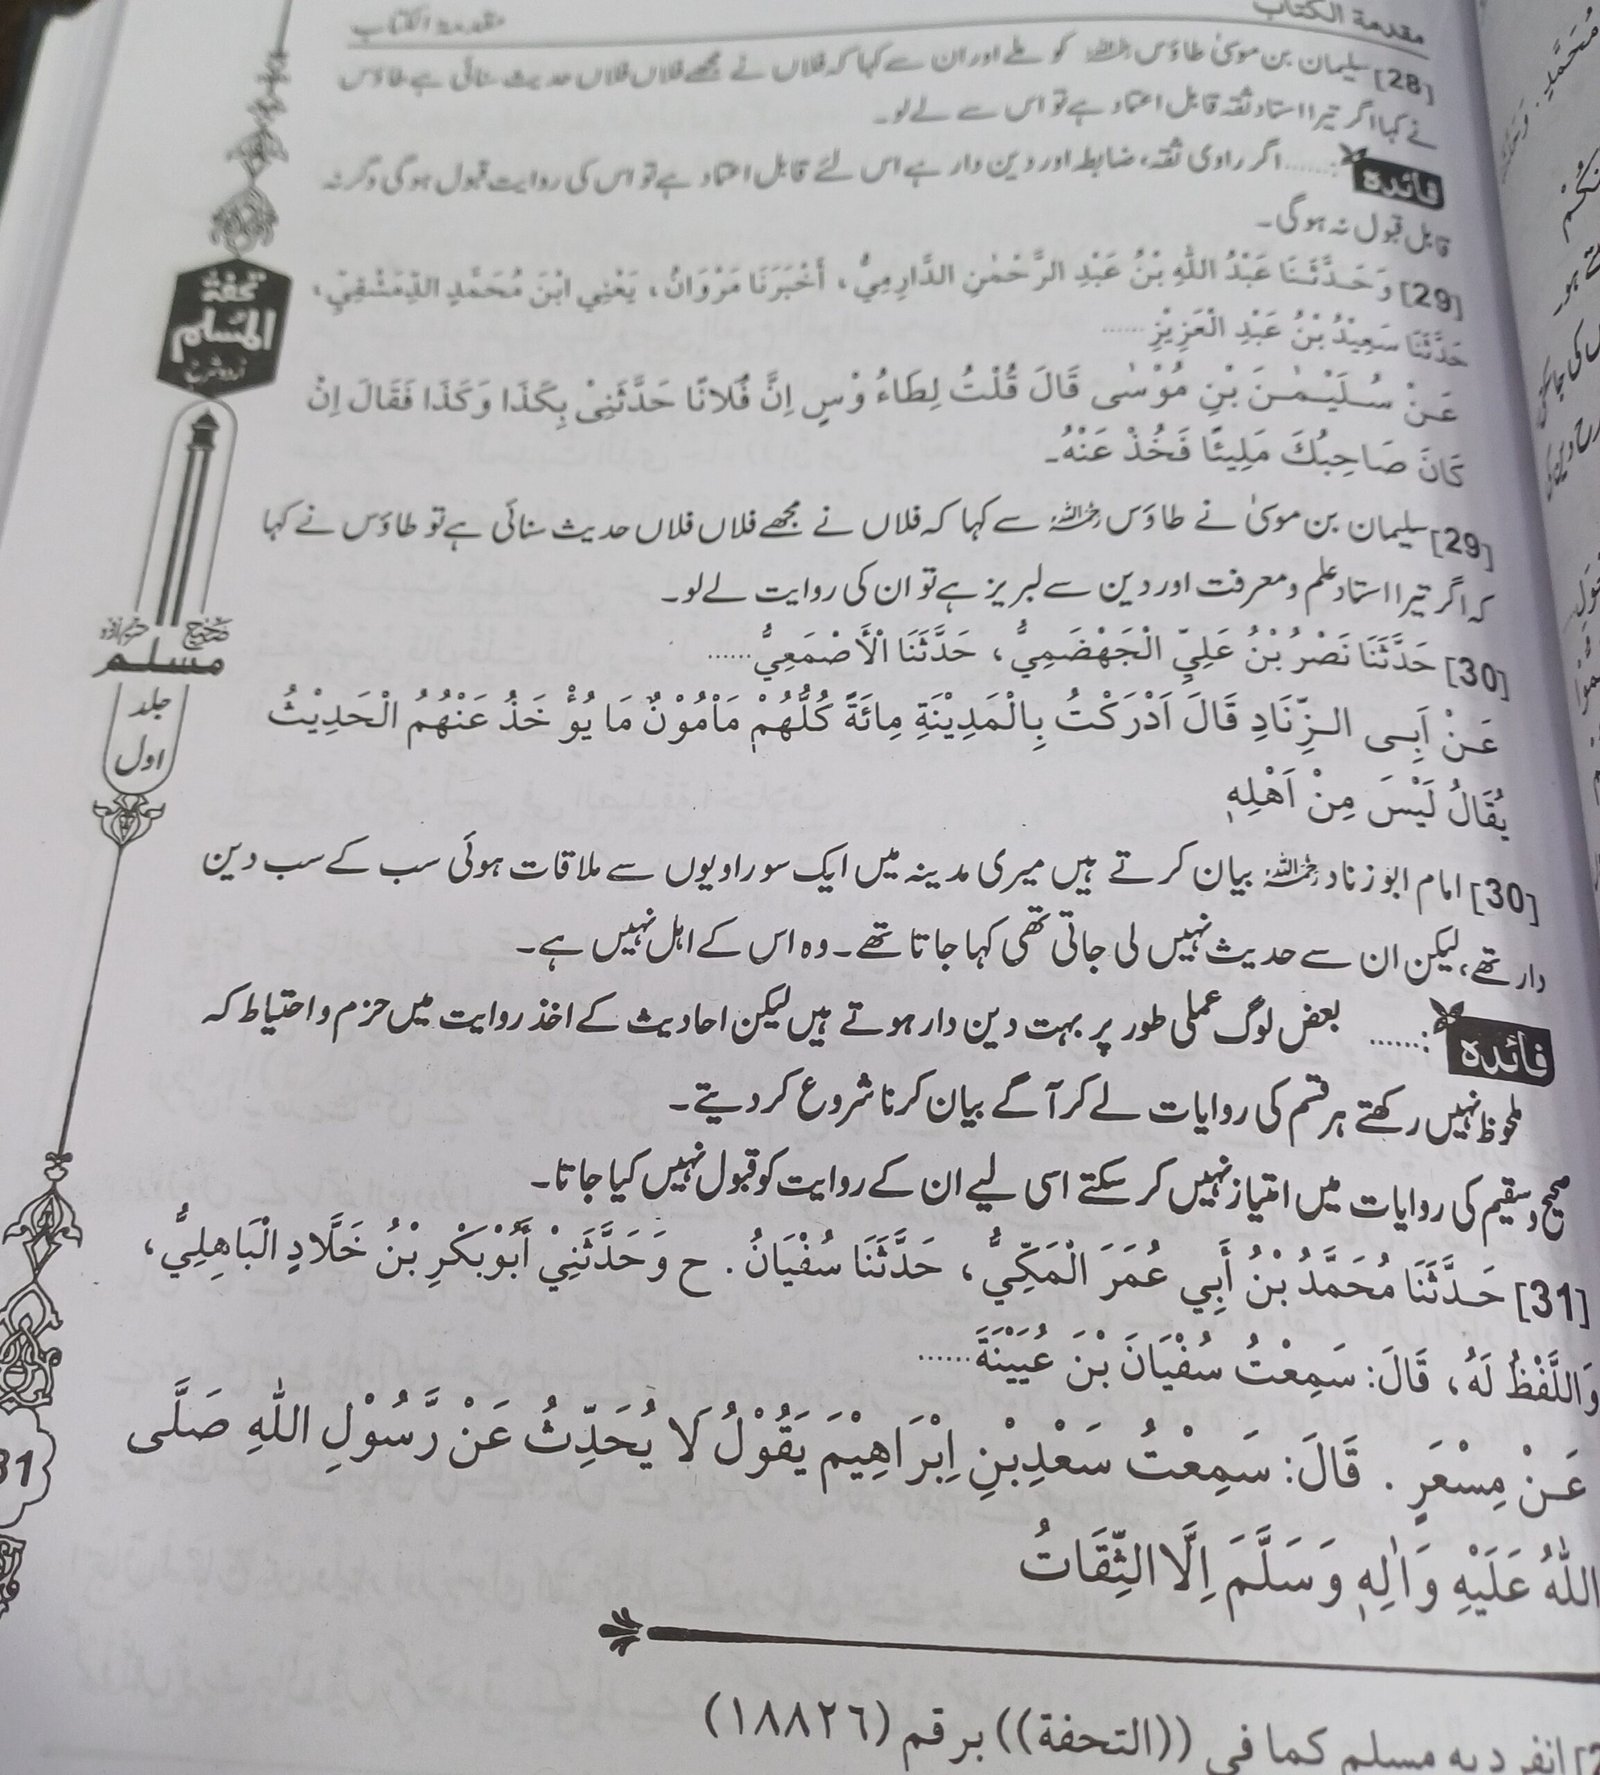 مقدمة الكتاب
مقدمة الكتاب
[28] سلیمان بن موسیٰ طاؤس رحمہ اللہ کو ملے اور ان سے کہا کہ فلاں نے مجھے فلاں فلاں حدیث سنائی ہے طاؤس
نے کہا اگر تیرا استاد ثقہ قابل اعتماد ہے تو اس سے لے لو۔
فائدہ :...... اگر راوی ثقہ، ضابط اور دین دار ہے اس لئے قابل اعتماد ہے تو اس کی روایت قبول ہوگی وگرنہ
قابل قبول نہ ہوگی۔
[29] وَحَدَّثَنَا عَبْدُ اللّٰهِ بْنُ عَبْدِ الرَّحْمٰنِ الدَّارِمِيُّ، أَخْبَرَنَا مَرْوَانُ، يَعْنِي ابْنَ مُحَمَّدِ الدِّمَشْقِيَّ،
حَدَّثَنَا سَعِيْدُ بْنُ عَبْدِ الْعَزِيْزِ ......
عَنْ سُلَيْمٰنَ بْنِ مُوْسٰى قَالَ قُلْتُ لِطَاءُ وْسٍ اِنَّ فُلَانًا حَدَّثَنِىْ بِكَذَا وَكَذَا فَقَالَ اِنْ
كَانَ صَاحِبُكَ مَلِيئًا فَخُذْ عَنْهُ۔
[29] سلیمان بن موسیٰ نے طاؤس رحمہ اللہ سے کہا کہ فلاں نے مجھے فلاں فلاں حدیث سنائی ہے تو طاؤس نے کہا
کہ اگر تیرا استاد علم و معرفت اور دین سے لبریز ہے تو ان کی روایت لے لو۔
[30] حَدَّثَنَا نَصْرُ بْنُ عَلِيِّ الْجَهْضَمِيُّ، حَدَّثَنَا الْأَصْمَعِيُّ ......
عَنْ اَبِى الزِّنَادِ قَالَ اَدْرَكْتُ بِالْمَدِيْنَةِ مِائَةً كُلُّهُمْ مَاْمُوْنٌ مَا يُؤْ خَذُ عَنْهُمُ الْحَدِيْثُ
يُقَالُ لَيْسَ مِنْ اَهْلِهٖ
[30] امام ابو زناد رحمہ اللہ بیان کرتے ہیں میری مدینہ میں ایک سو راویوں سے ملاقات ہوئی سب کے سب دین
دار تھے، لیکن ان سے حدیث نہیں لی جاتی تھی کہا جاتا تھے۔ وہ اس کے اہل نہیں ہے۔
فائدہ :...... بعض لوگ عملی طور پر بہت دین دار ہوتے ہیں لیکن احادیث کے اخذ روایت میں حزم و احتیاط کہ
ملحوظ نہیں رکھتے ہر قسم کی روایات لے کر آگے بیان کرنا شروع کر دیتے۔
صحیح و سقیم کی روایات میں امتیاز نہیں کر سکتے اسی لیے ان کے روایت کو قبول نہیں کیا جاتا۔
[31] حَدَّثَنَا مُحَمَّدُ بْنُ أَبِي عُمَرَ الْمَكِّيُّ، حَدَّثَنَا سُفْيَانُ . ح وَحَدَّثَنِيْ أَبُوْبَكْرِ بْنُ خَلَّادٍ الْبَاهِلِيُّ،
وَاللَّفْظُ لَهُ، قَالَ: سَمِعْتُ سُفْيَانَ بْنَ عُيَيْنَةَ ......
عَنْ مِسْعَرٍ . قَالَ: سَمِعْتُ سَعْدِبْنِ اِبْرَاهِيْمَ يَقُوْلُ لَا يُحَدِّثُ عَنْ رَّسُوْلِ اللّٰهِ صَلَّى
اللّٰهُ عَلَيْهِ وَاٰلِهٖ وَسَلَّمَ اِلَّا الثِّقَاتُ
انفرد به مسلم كما فى ((التحفة)) برقم (١٨٨٢٦)
تحفة
المسلم
اردو شرح
صحیح
مسلم
جلد
اول
31